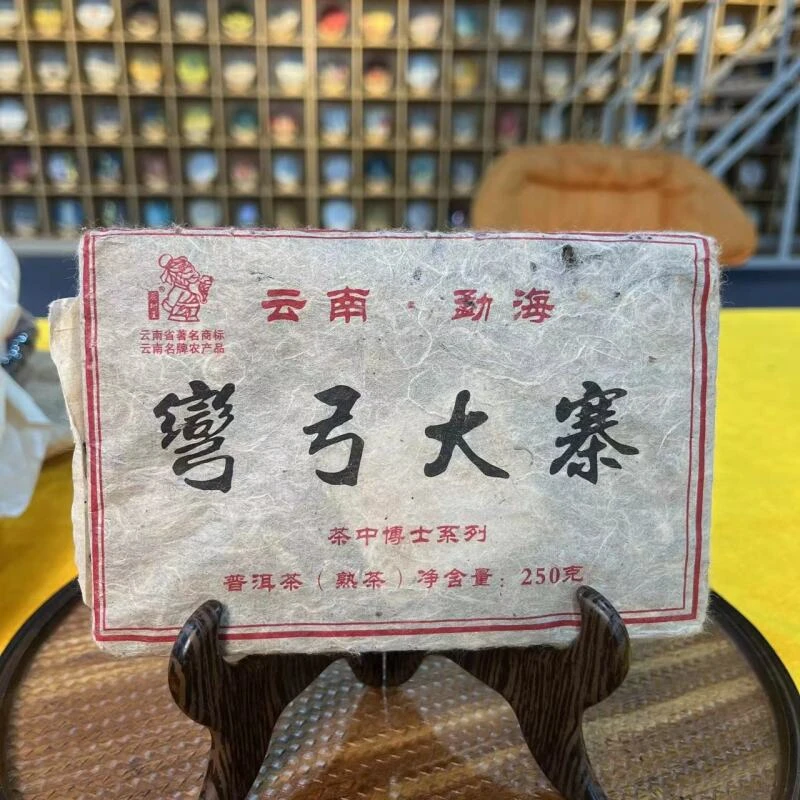 云南·勐海
云南省著名商标
云南名牌农产品
彎弓大寨
茶中博士系列
普洱茶(熟茶)净含量:250克